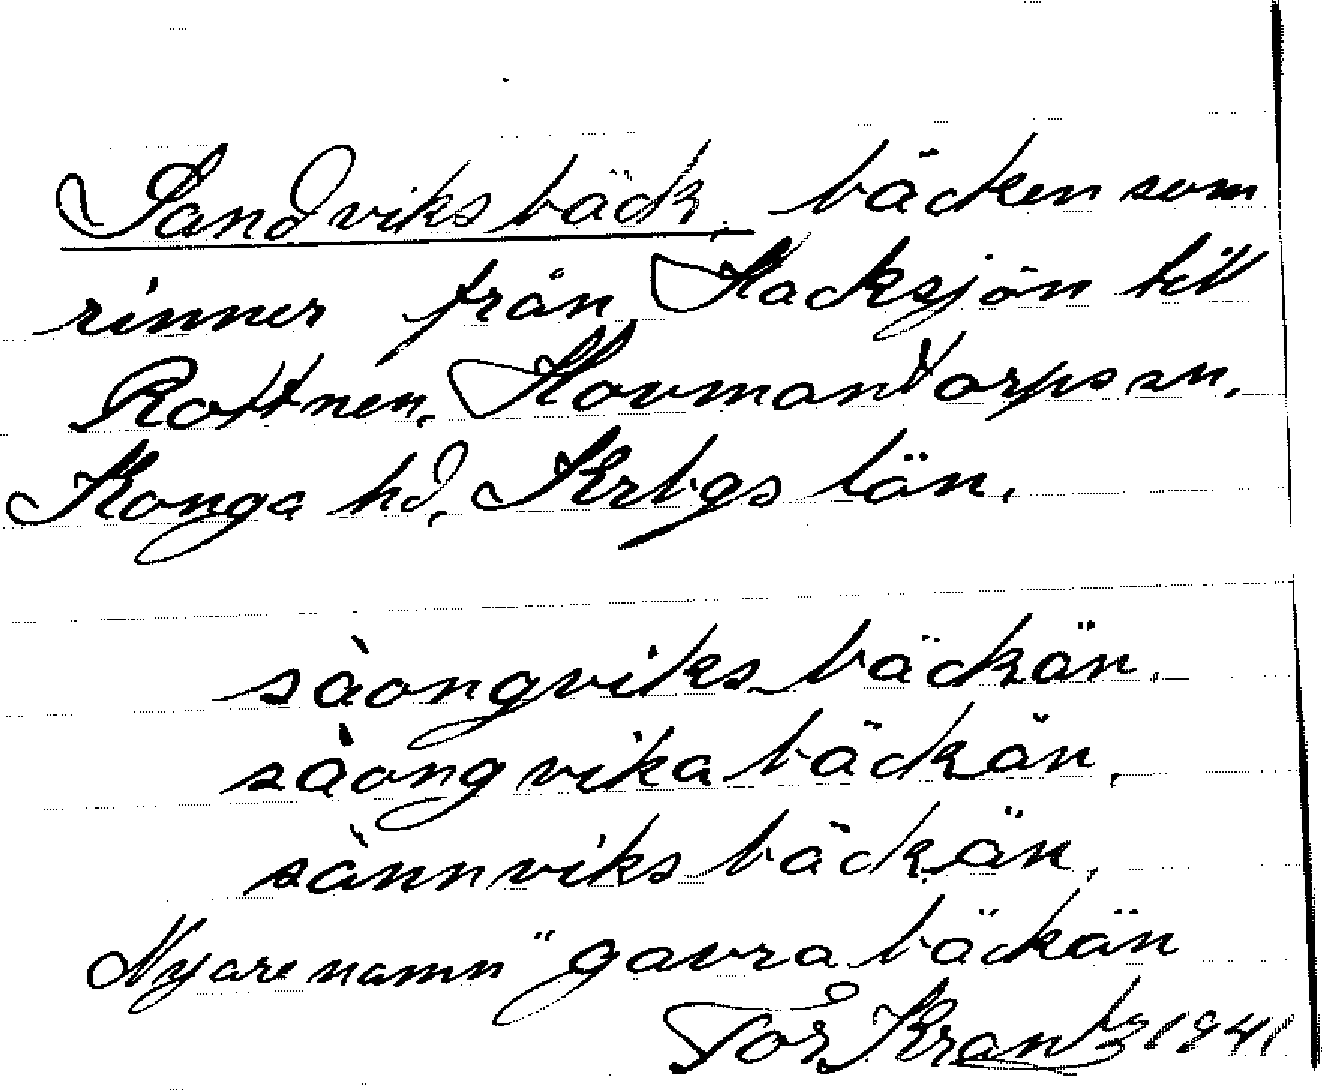 Sandviksbäck, bäcken som
rinner från Hacksjön till
Rottnen, Hovmantorps sn,
Konga hd, Krbgs län.
sàongviksbäckän,
sàongvikabäckän,
sànnviksbäckän,
Nyare namn "gavrabäckän
Tor Krantz 1941